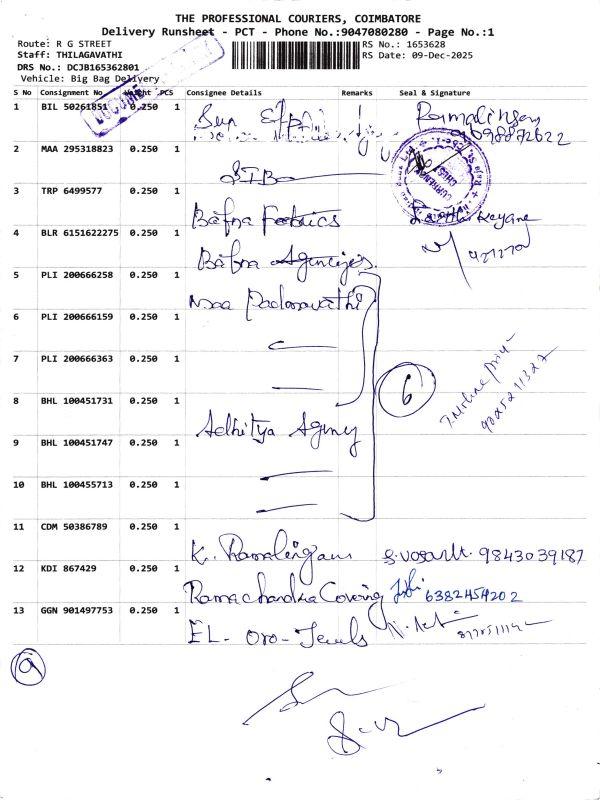 THE PROFESSIONAL COURIERS, COIMBATORE
Delivery Runsheet - PCT - Phone No.:9047080280 - Page No.:1
Route: R G STREET
RS No.: 1653628
Staff: THILAGAVATHI
RS Date: 09-Dec-2025
DRS No.: DCJB165362801
Vehicle: Big Bag Delivery
S No Consignment No Weight PCS Consignee Details Remarks Seal & Signature
1 BIL 50261851 0.250 1 Sun
2 MAA 295318823 0.250 1 STB
3 TRP 6499577 0.250 1 Bafna Fabrics
4 BLR 6151622275 0.250 1 Bafna Agencies
5 PLI 200666258 0.250 1 Maa Padmavathi
6 PLI 200666159 0.250 1
7 PLI 200666363 0.250 1
6
8 BHL 100451731 0.250 1 Adhitya Agency
9 BHL 100451747 0.250 1
10 BHL 100455713 0.250 1
11 CDM 50386789 0.250 1 K. Ramalingam 9843039187
12 KDI 867429 0.250 1 Ramachandra Covering 6382454202
13 GGN 901497753 0.250 1 EL- Oro- Jewels
9